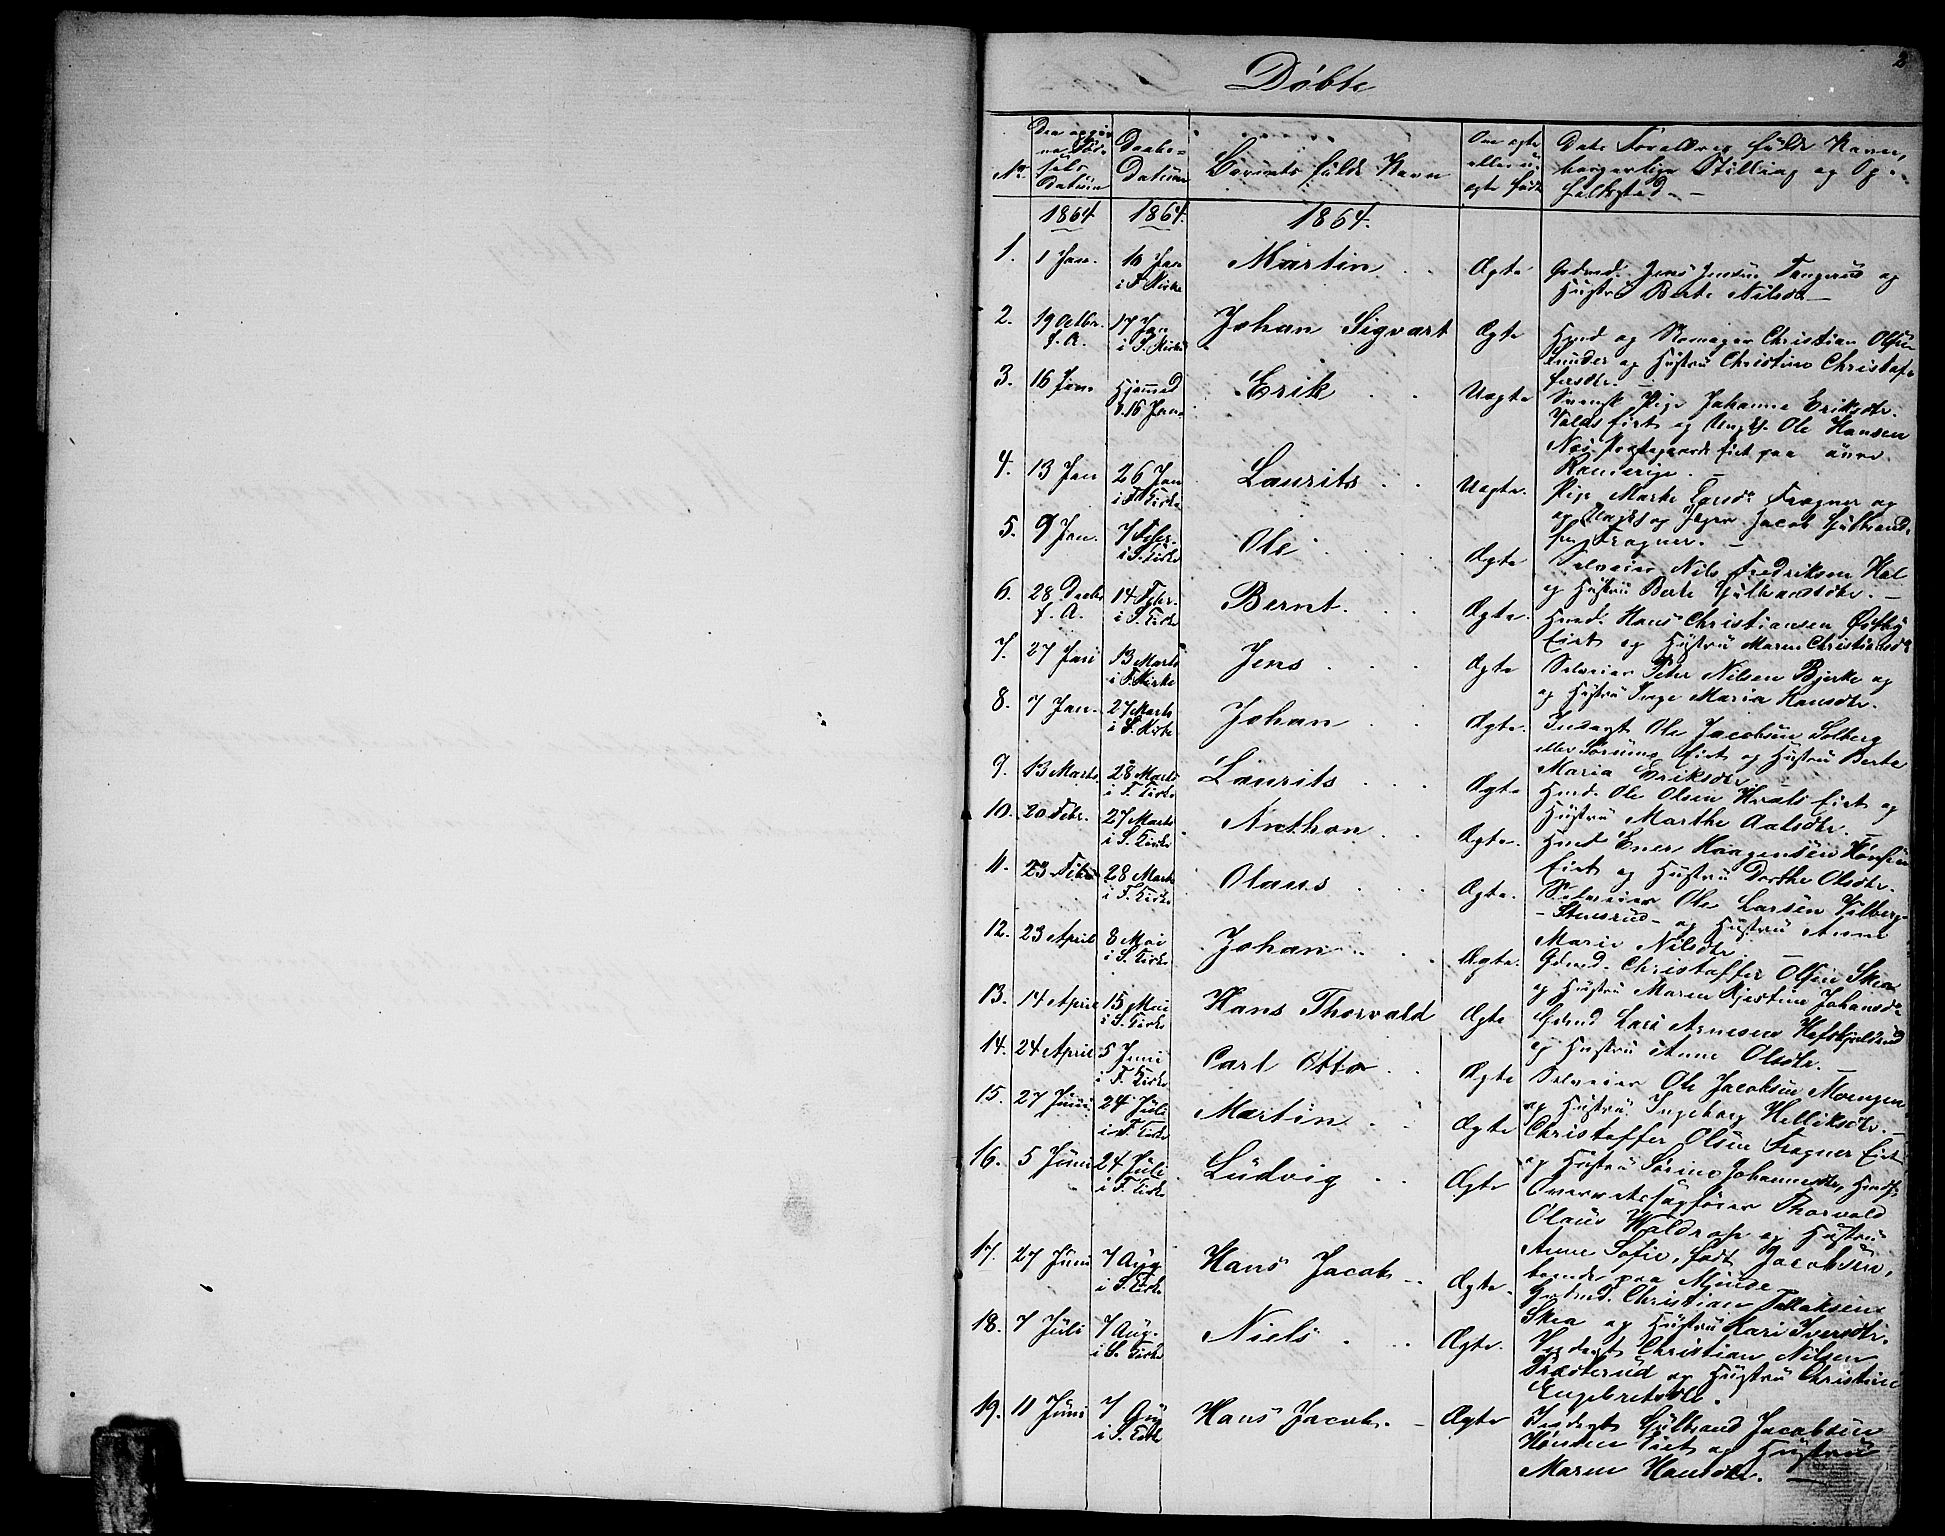 2
Døbte
No. Den opgivne Fødsels Datum Daabs-Datum Barnets fulde Navn Om ægte eller uægte født Dets Forældres fulde Navn, borgerlige Stilling og Opholdsted
1864 1864. 1864.
1. 1 Jan. 10 Jan i F. Kirke Martin Ægte Gdmd. Jens Jensen Tangerud og
Hustru Berte Nilsdr
2. 19 Octbr. f. A. 17 Jan i S. Kirke Johan Sigvart Ægte Hmd og Skomager Christian Olsen
og Hustru Christine Christof-
fersdr.
3. 16 Jan. Hjemmed. d. 16 Jan. Erik Uægte Svensk Pige Johanne Eriksdr.
Eiet og Ungk. Ole Hansen
Næs Præstegaards Eiet paa øvre
Romerige.
4. 13 Jan 26 Jan i F. Kirke Laurits Uægte. Pige Marte Larsdr Frogner og
Ungk og Jacob Gulbrand-
sen Frogner.
5. 9 Jan. 7 Febr. i S. Kirke Ole Ægte Selveier Nils Fredriksen Hol
og Hustru Berte Gulbrandsdr.
6. 28 Decbr f. A. 14 Febr. i S. Kirke Bernt. Ægte. Hmd. Hans Christiansen Østby
Eiet og Hustru Maren Christiansdr
7. 27 Jan 13 Marts i F. Kirke Jens Ægte Selveier Peter Nilsen Bjerke og
og Hustru Inge Maria Hansdr.
8. 7 Jan. 27 Marts i S. Kirke Johan Ægte. Inderst Ole Jacobsen Solberg
eller Sørums Eiet og Hustru Berte
Maria Eriksdr
9. 13 Marts 28 Marts i F. Kirke Laurits Ægte Hmd. Ole Olsen Hvals Eiet og
Hustru Marthe Olsdr.
10. 20 Febr. 27 Marts i S. Kirke Anthon Ægte. Hmd Ener Haagensen
Eiet og Hustru Dorthe Olsdr.
11. 23 Febr 28 Marts i F. Kirke Olaus Ægte. Selveier Ole Larsen Vilberg
Stensrud og Hustru Anne
Marie Nilsdr.
12. 23 April 8 Mai i S. Kirke Johan Ægte. Gdmd. Christoffer Olsen Skea
og Hustru Maren Kjestine Johansdr
13. 14 April 15 Mai i S. Kirke Hans Thorvald Ægte Gdmd Lars Arnesen
og Hustru Anne Olsdr.
14. 24 April 5 Juni i F. Kirke Carl Otto Ægte Selveier Ole Jacobsen Moengen
og Hustru Ingeborg Helliksdr.
15. 27 Juni 24 Juli i F. Kirke Martin Ægte Christoffer Olsen Frogner Eiet
og Hustru Sørine Johannesdr, Hmdf.
16. 5 Juni 24 Juli i F. Kirke Ludvig Ægte Overretssagfører Thorvald
Olaus og Hustru
Anne Sofie, født Jacobsen,
boende paa Minde
17. 27 Juni 7 Aug i S. Kirke Hans Jacob Ægte. Gdmd. Christian
Skea og Hustru Kari Iversdr.
18. 7 Juli 7 Aug. i S. Kirke Niels Ægte. Inderst Christian Nilsen
Præsterud og Hustru Christine
Engebretsdr.
19. 11 Juni 7 Aug i S. Kirke Hans Jacob. Ægte Inderst Gulbrand Jacobsen
Eiet og Hustru
Maren Hansdr.